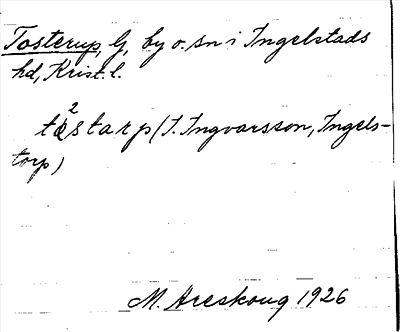 Tosterup, G, by o. sn i Ingelstads
hd, Krist. l.
2
tòstarp (J. Ingvarsson, Ingels-
torp)
M. Areskoug 1926